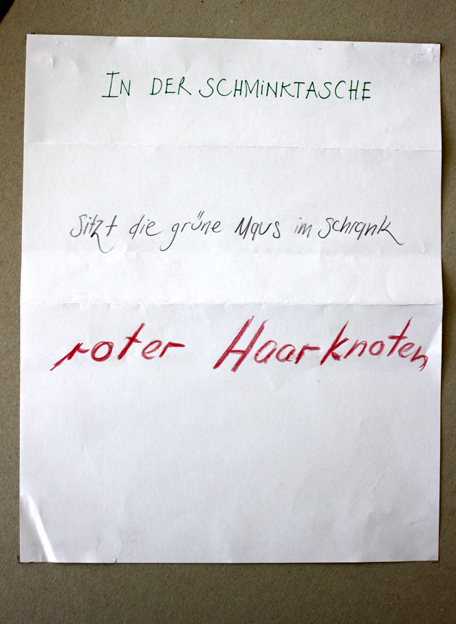 IN DER SCHMiNKTASCHE
Sitzt die grüne Maus im Schrank
roter Haarknoten